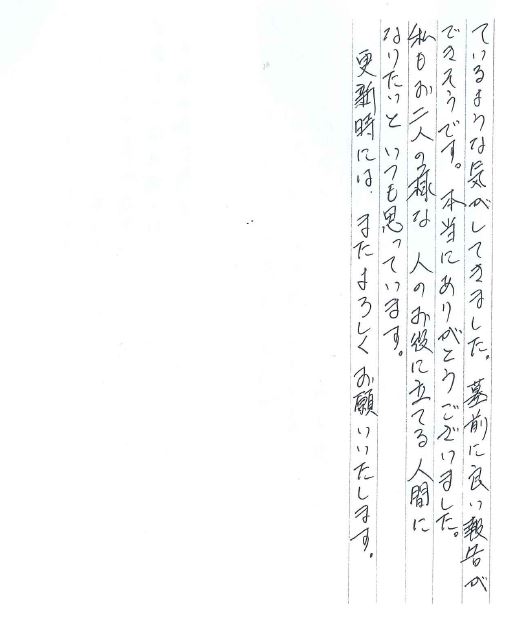 ているような気がしてきました。墓前に良い報告が
できそうです。本当にありがとうございました。
私もお二人の様な 人のお役に立てる人間に
なりたいといつも思っています。
更新時には、またよろしくお願いいたします。